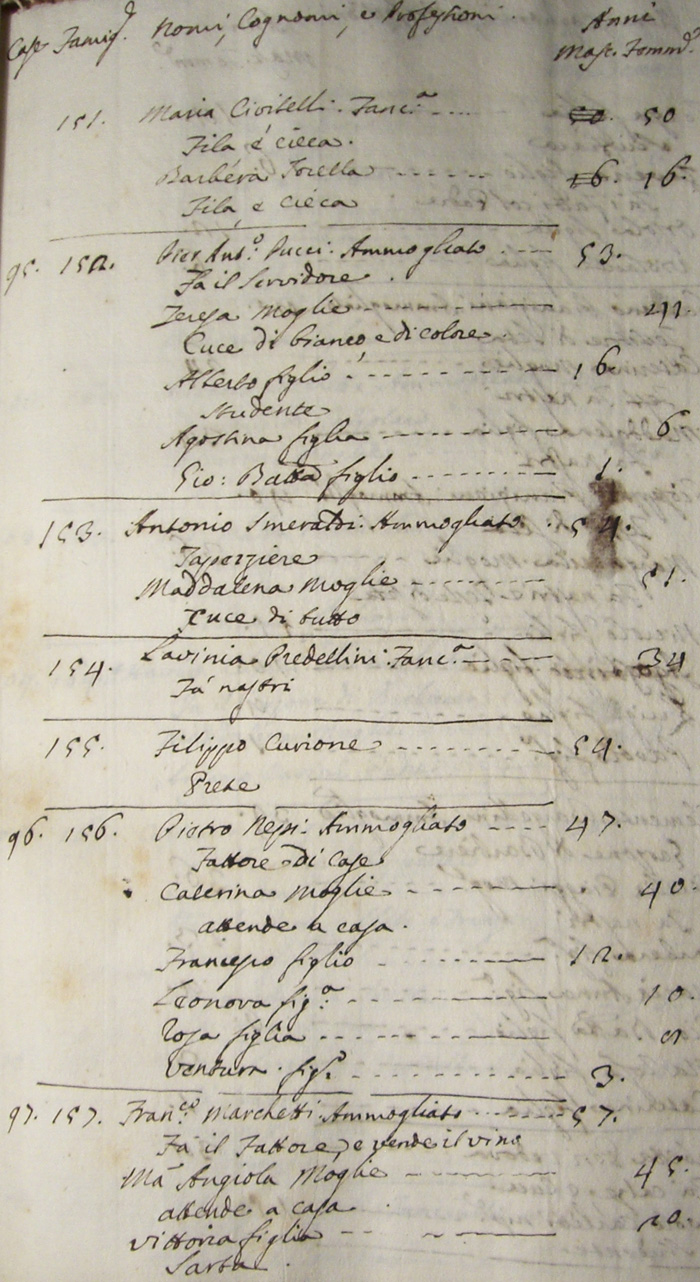 Case Famigᵉ Nomi, Cognomi, e Professioni. Anni
Masc. Femmᵉ
151. Maria Civitelli. Fancª 50. 50
Fila é cieca.
Barbéra Torella 16. 16.
Fila, e cieca
95. 152. Pier Antº. Pucci. Ammogliato 53.
Fa il Servidore.
Teresa Moglie 41.
Cuce di bianco, e di colore.
Alberto figlio 16.
Studente
Agostina figlia 6
Gio: Battã figlio 1.
153. Antonio Smeraldi. Ammogliato 54.
Tapezziere
Maddalena Moglie 51.
Cuce di tutto
154. Lavinia Predellini. Fancª 34
Fá nastri
155. Filippo Curione 54.
Prete
96. 156. Pietro Nepi. Ammogliato 47.
Fattore di Case
Caterina Moglie 40.
attende a casa.
Francesco figlio 12.
Leonora figª 10.
Rosa figlia
Ventura figº 3.
97. 157. Francº. Marchetti. Ammogliato 57.
Fá il Fattore, e vende il vino
Mª Angiola Moglie 45.
attende a casa
Vittoria figlia 20.
Sarta.